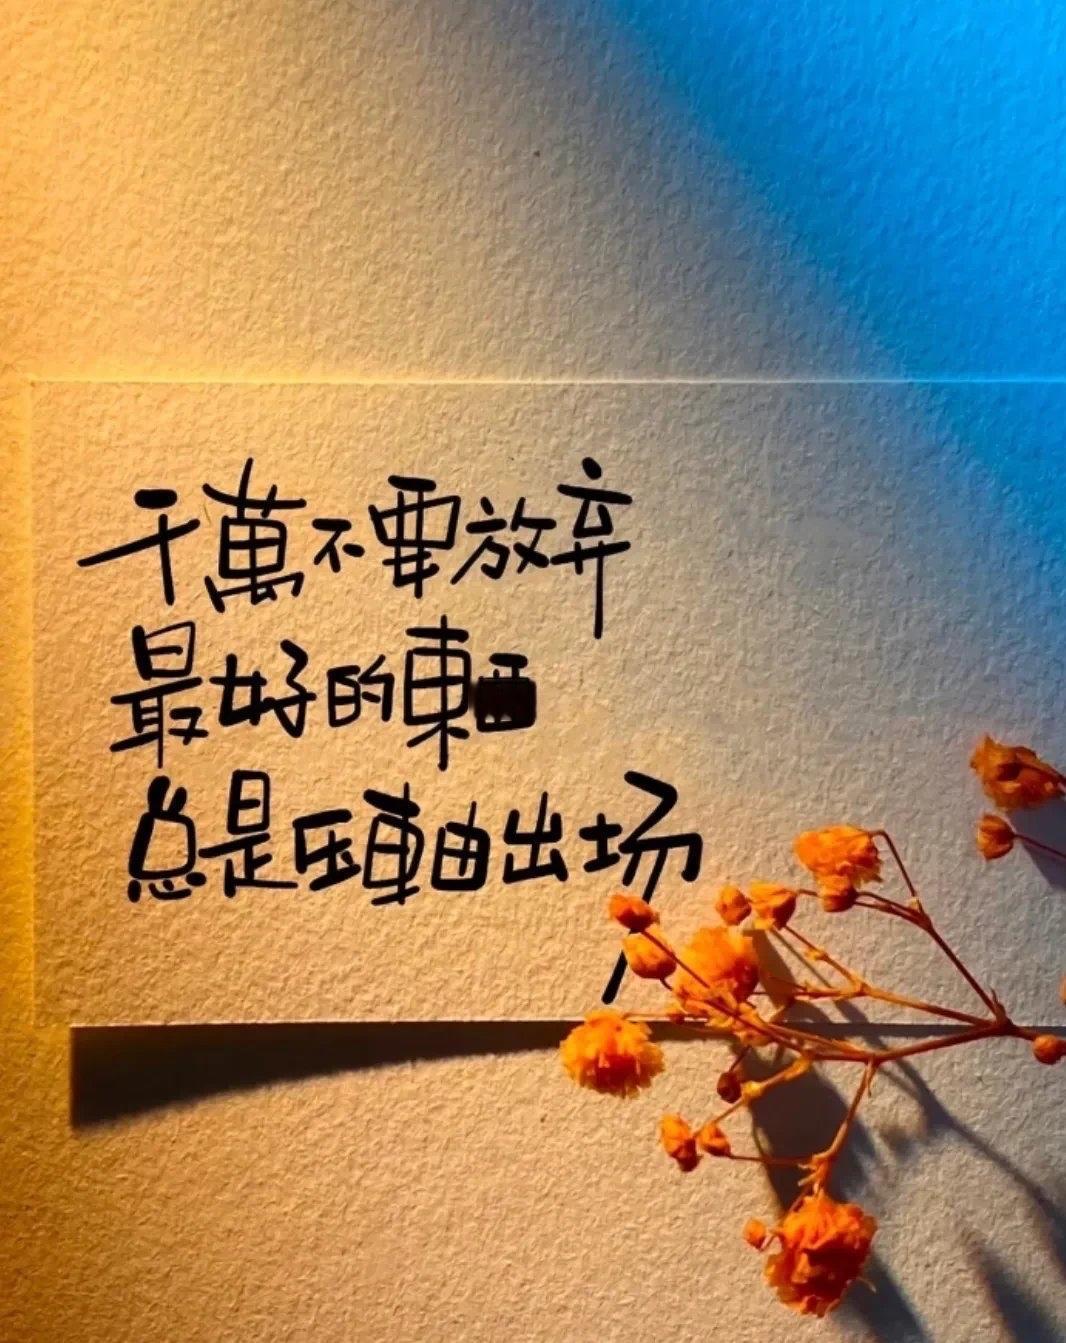 千萬不要放弃
最好的東
总是压軸出场